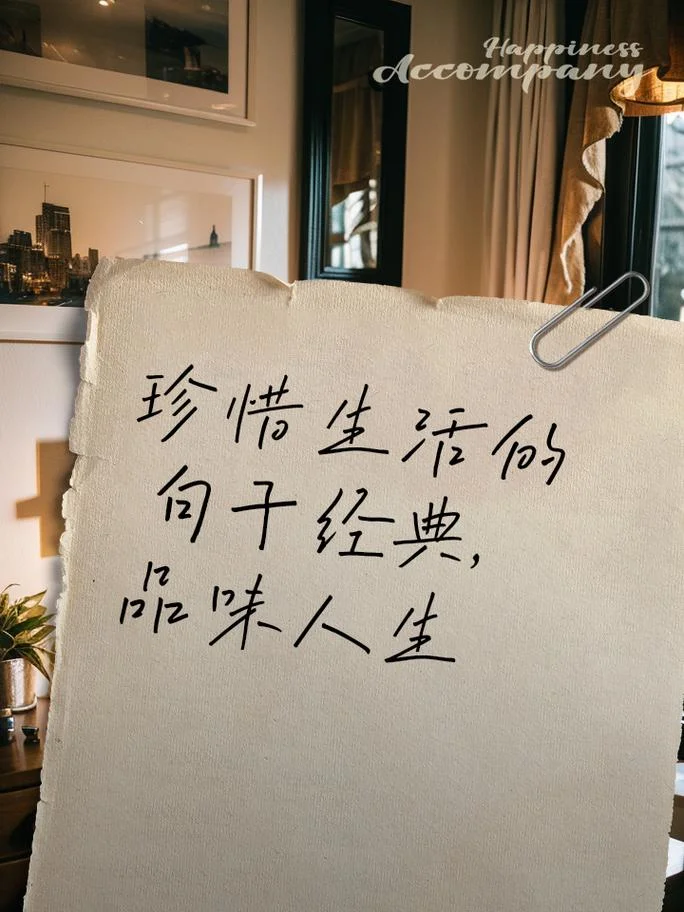 Happiness
Accompany
珍惜生活的
句子经典,
品味人生